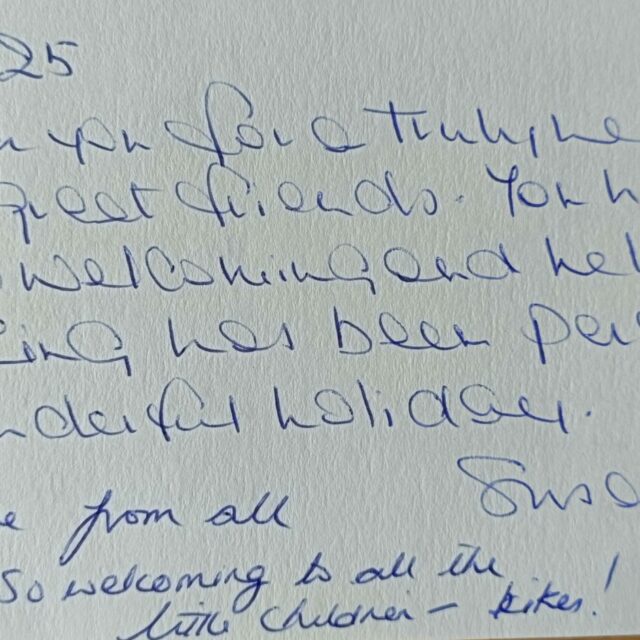 25
you for a truly
great friends. You h
welcoming and hel
ing has been per
nderful holiday.
Susa
e from all
So welcoming to all the
little children - bikes!